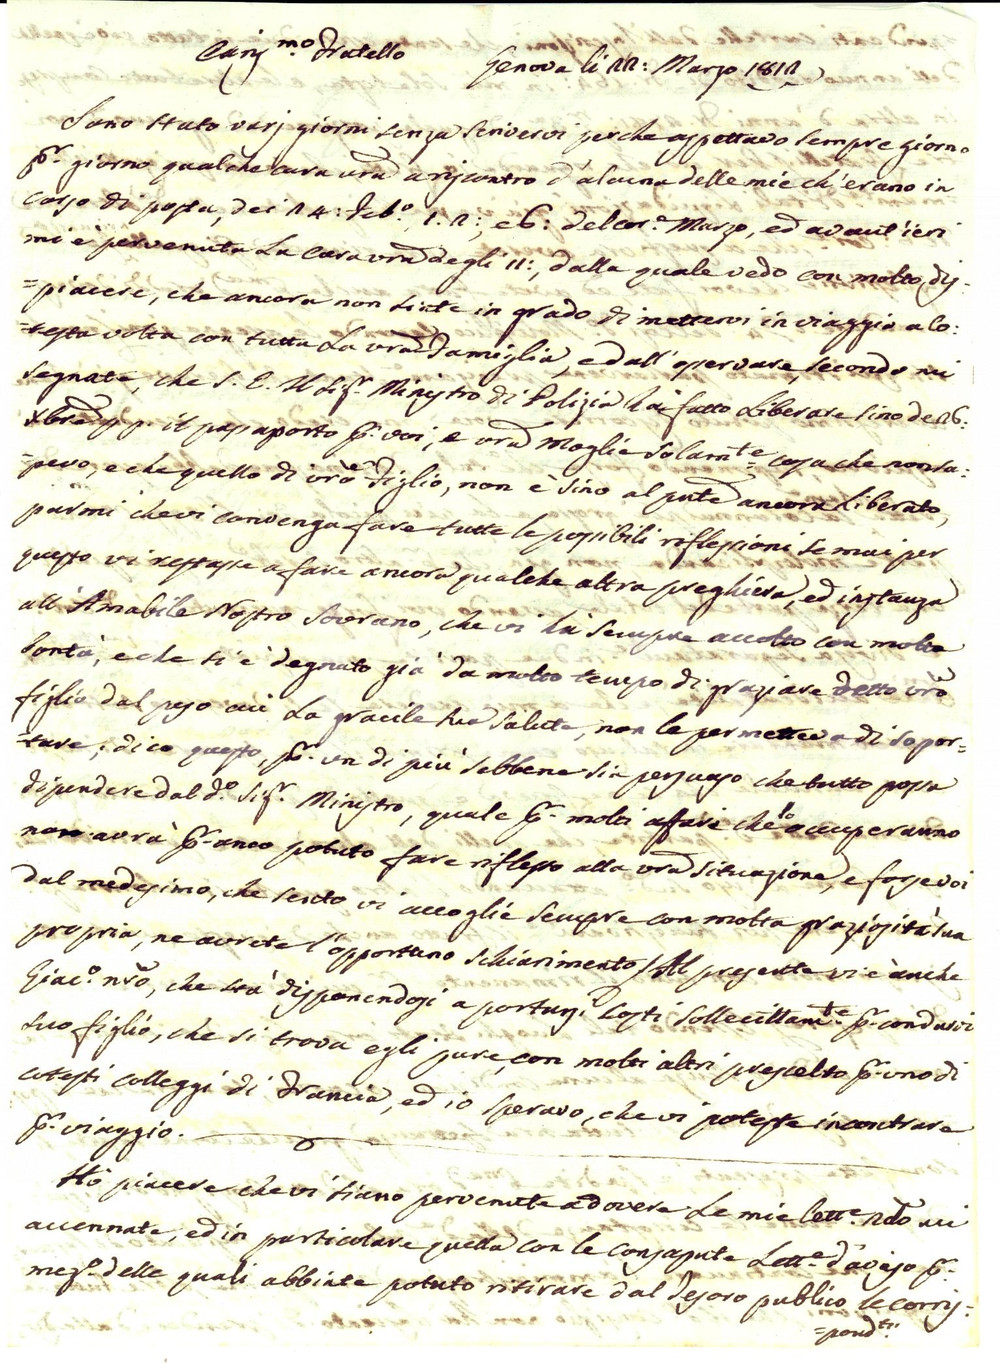 Cariss.mo Fratello
Genova li 22: Marzo 1812
Sono stato varj giorni senza scrivervi perche aspettavo sempre giorno
pr. giorno qualche cara vra a riscontro d'alcuna delle mie ch'erano in
corso di posta, dei 24: Feb.o, 1. 2:, e 6: del cor.e Marzo, ed avant'ieri
mi è pervenuta La cara vra degli 11:, dalla quale vedo con molto dis-
=piacere, che ancora non siete in grado di mettervi in viaggio a co:
=testa volta con tutta La vra Famiglia, e dall'osservare, secondo mi
segnate, che S. E. Il Sigr. Ministro di Polizia ha fatto Liberare sino de 26:
Xbre p. p. il passaporto pr. voi, e vra Moglie solam.te cosa che non sa:
=pevo, e che quello di vro Figlio, non è sino al pnte ancora Liberato,
parmi che vi convenga fare tutte le possibili riflessioni se mai per
questo vi restasse a fare ancora qualche altra preghiera, ed instanza
all'Amabile Nostro Sovrano, che vi ha sempre accolto con molta
bontà, e che si è degnato già da molto tempo di graziare detto vro
figlio dal peso cui La gracile sua salute, non le permetteva di sopor=
=tare; dico questo, pr. un di più sebbene sia persuaso che tutto possa
dipendere dal d.o Sigr. Ministro, quale pr. molti affari che lo occuperanno
non avrà pr. anco potuto fare riflesso alla vra situazione, e forse voi
dal medesimo, che sento vi accoglie sempre con molta graziosità sua
propria, ne avrete l'opportuno schiarimento / Al presente vi è anche
Giac.o nro, che stà disponendosi a portarsi costì sollecittam.te pr. condurvi
suo figlio, che si trova egli pure, con molti altri prescelto pr. uno di
cotesti colleggi di Francia, ed io speravo, che vi poteste incontrare
pr. viaggio.
Hò piacere che vi siano pervenute a dovere Le mie lett.e che mi
accennate, ed in particolare quella con le consapute Lett.e d'avviso pr.
mez.o delle quali abbiate potuto ritirare dal Tesoro publico le corris=
=pond.ti